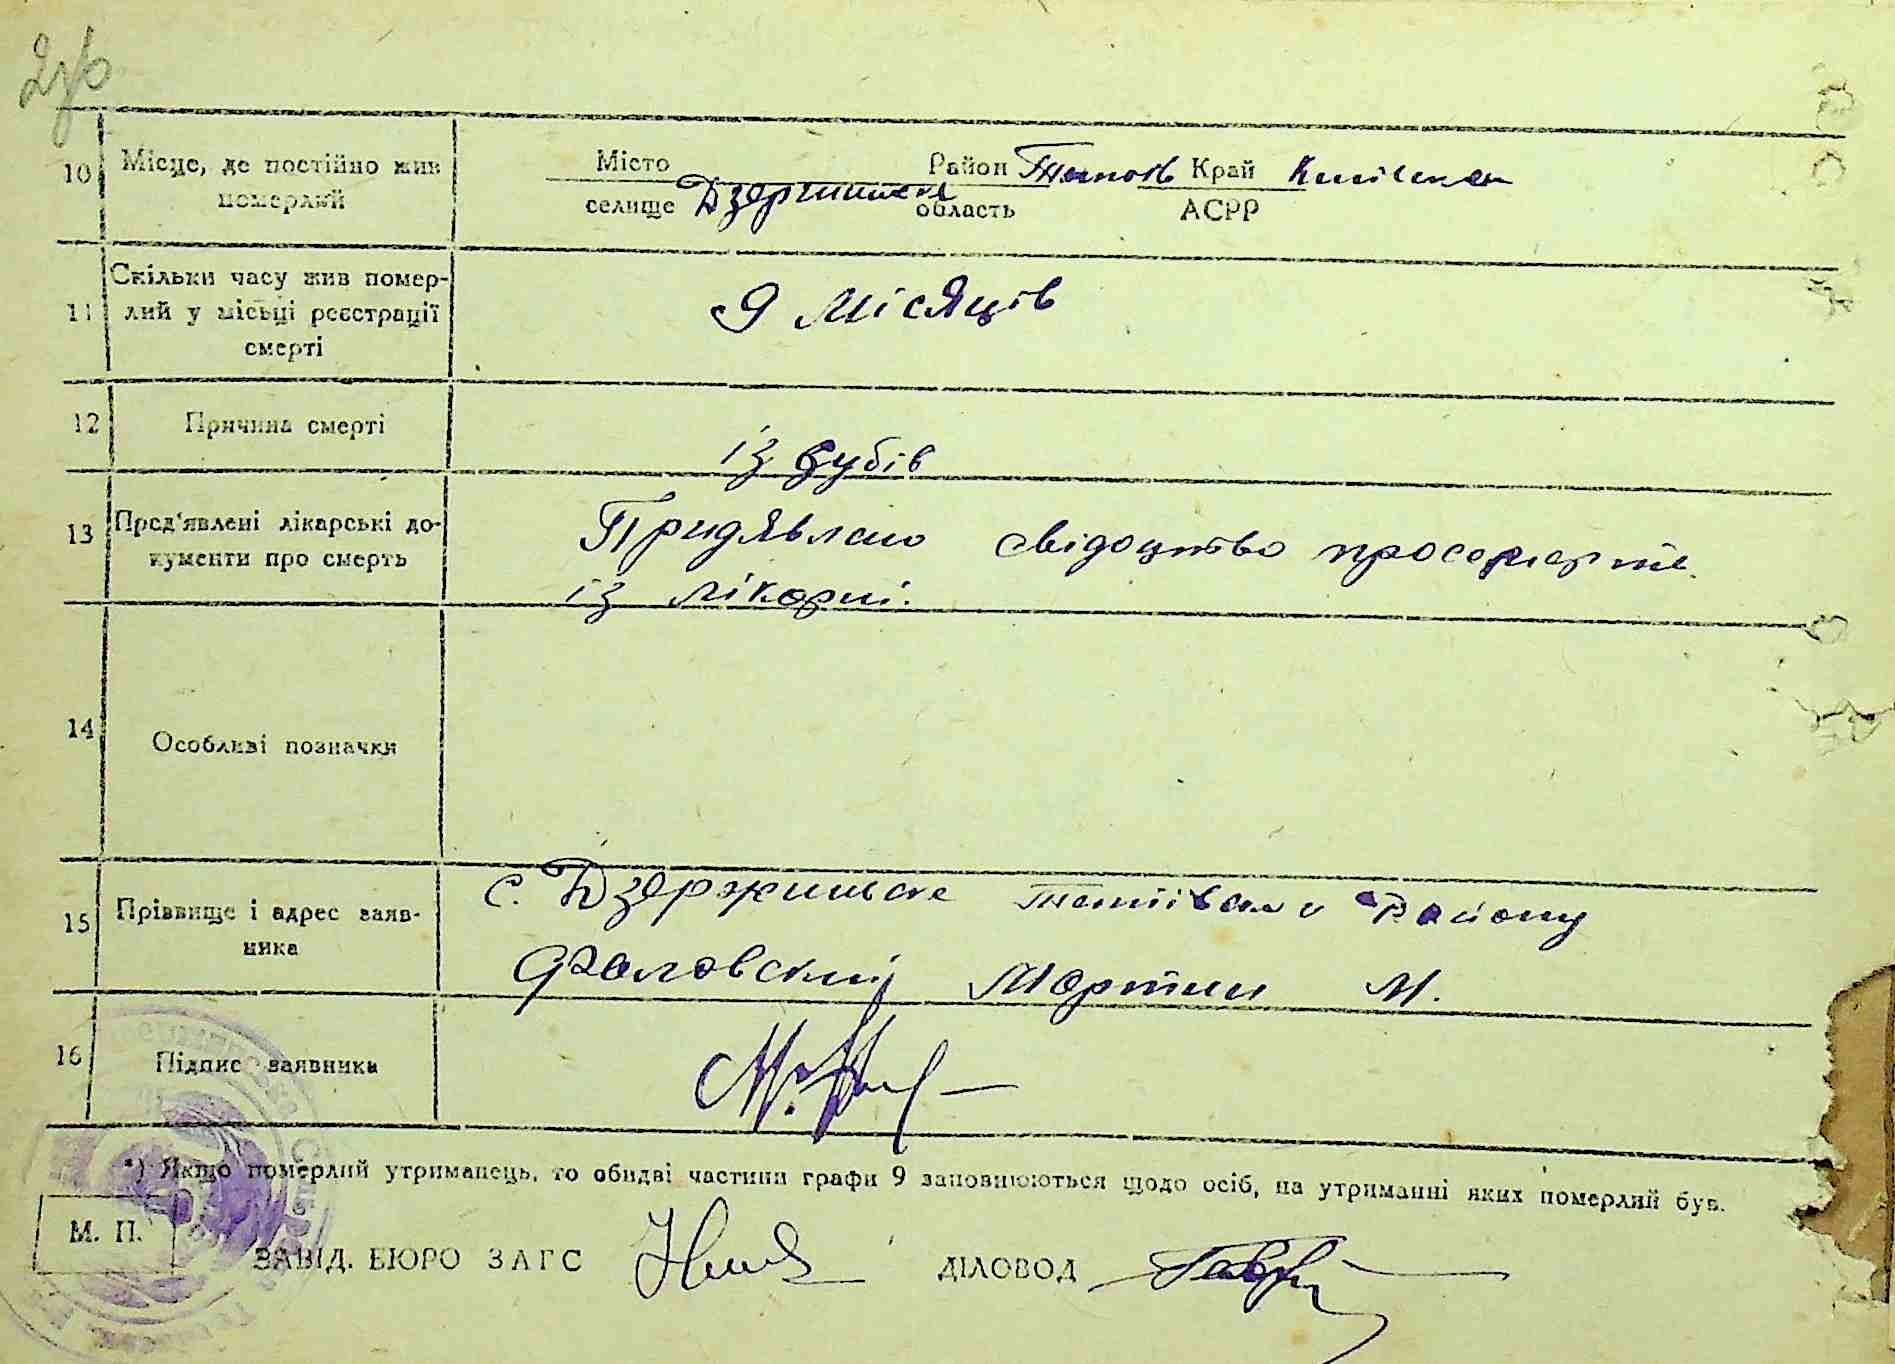 10 Місце, де постійно жив Місто Район Край
померлий селище Дзержинське область АСРР
Скільки часу жив помер-
11 лий у місьці реєстрації 9 місяців
смерті
12 Причина смерті із зубів
13 Пред'явлені лікарські до- Придявлено свідоцтво просмерте
кументи про смерть із лікарні.
14 Особливі позначки
с. Дзержинське Району
15 Прізвище і адрес заяв-
ника Мартин М.
16 Підпис заявника
*) Якщо померлий утриманець, то обидві частини графи 9 заповнюються щодо осіб, на утриманні яких померлий був.
М. П.
ЗАВІД. БЮРО ЗАГС ДІЛОВОД